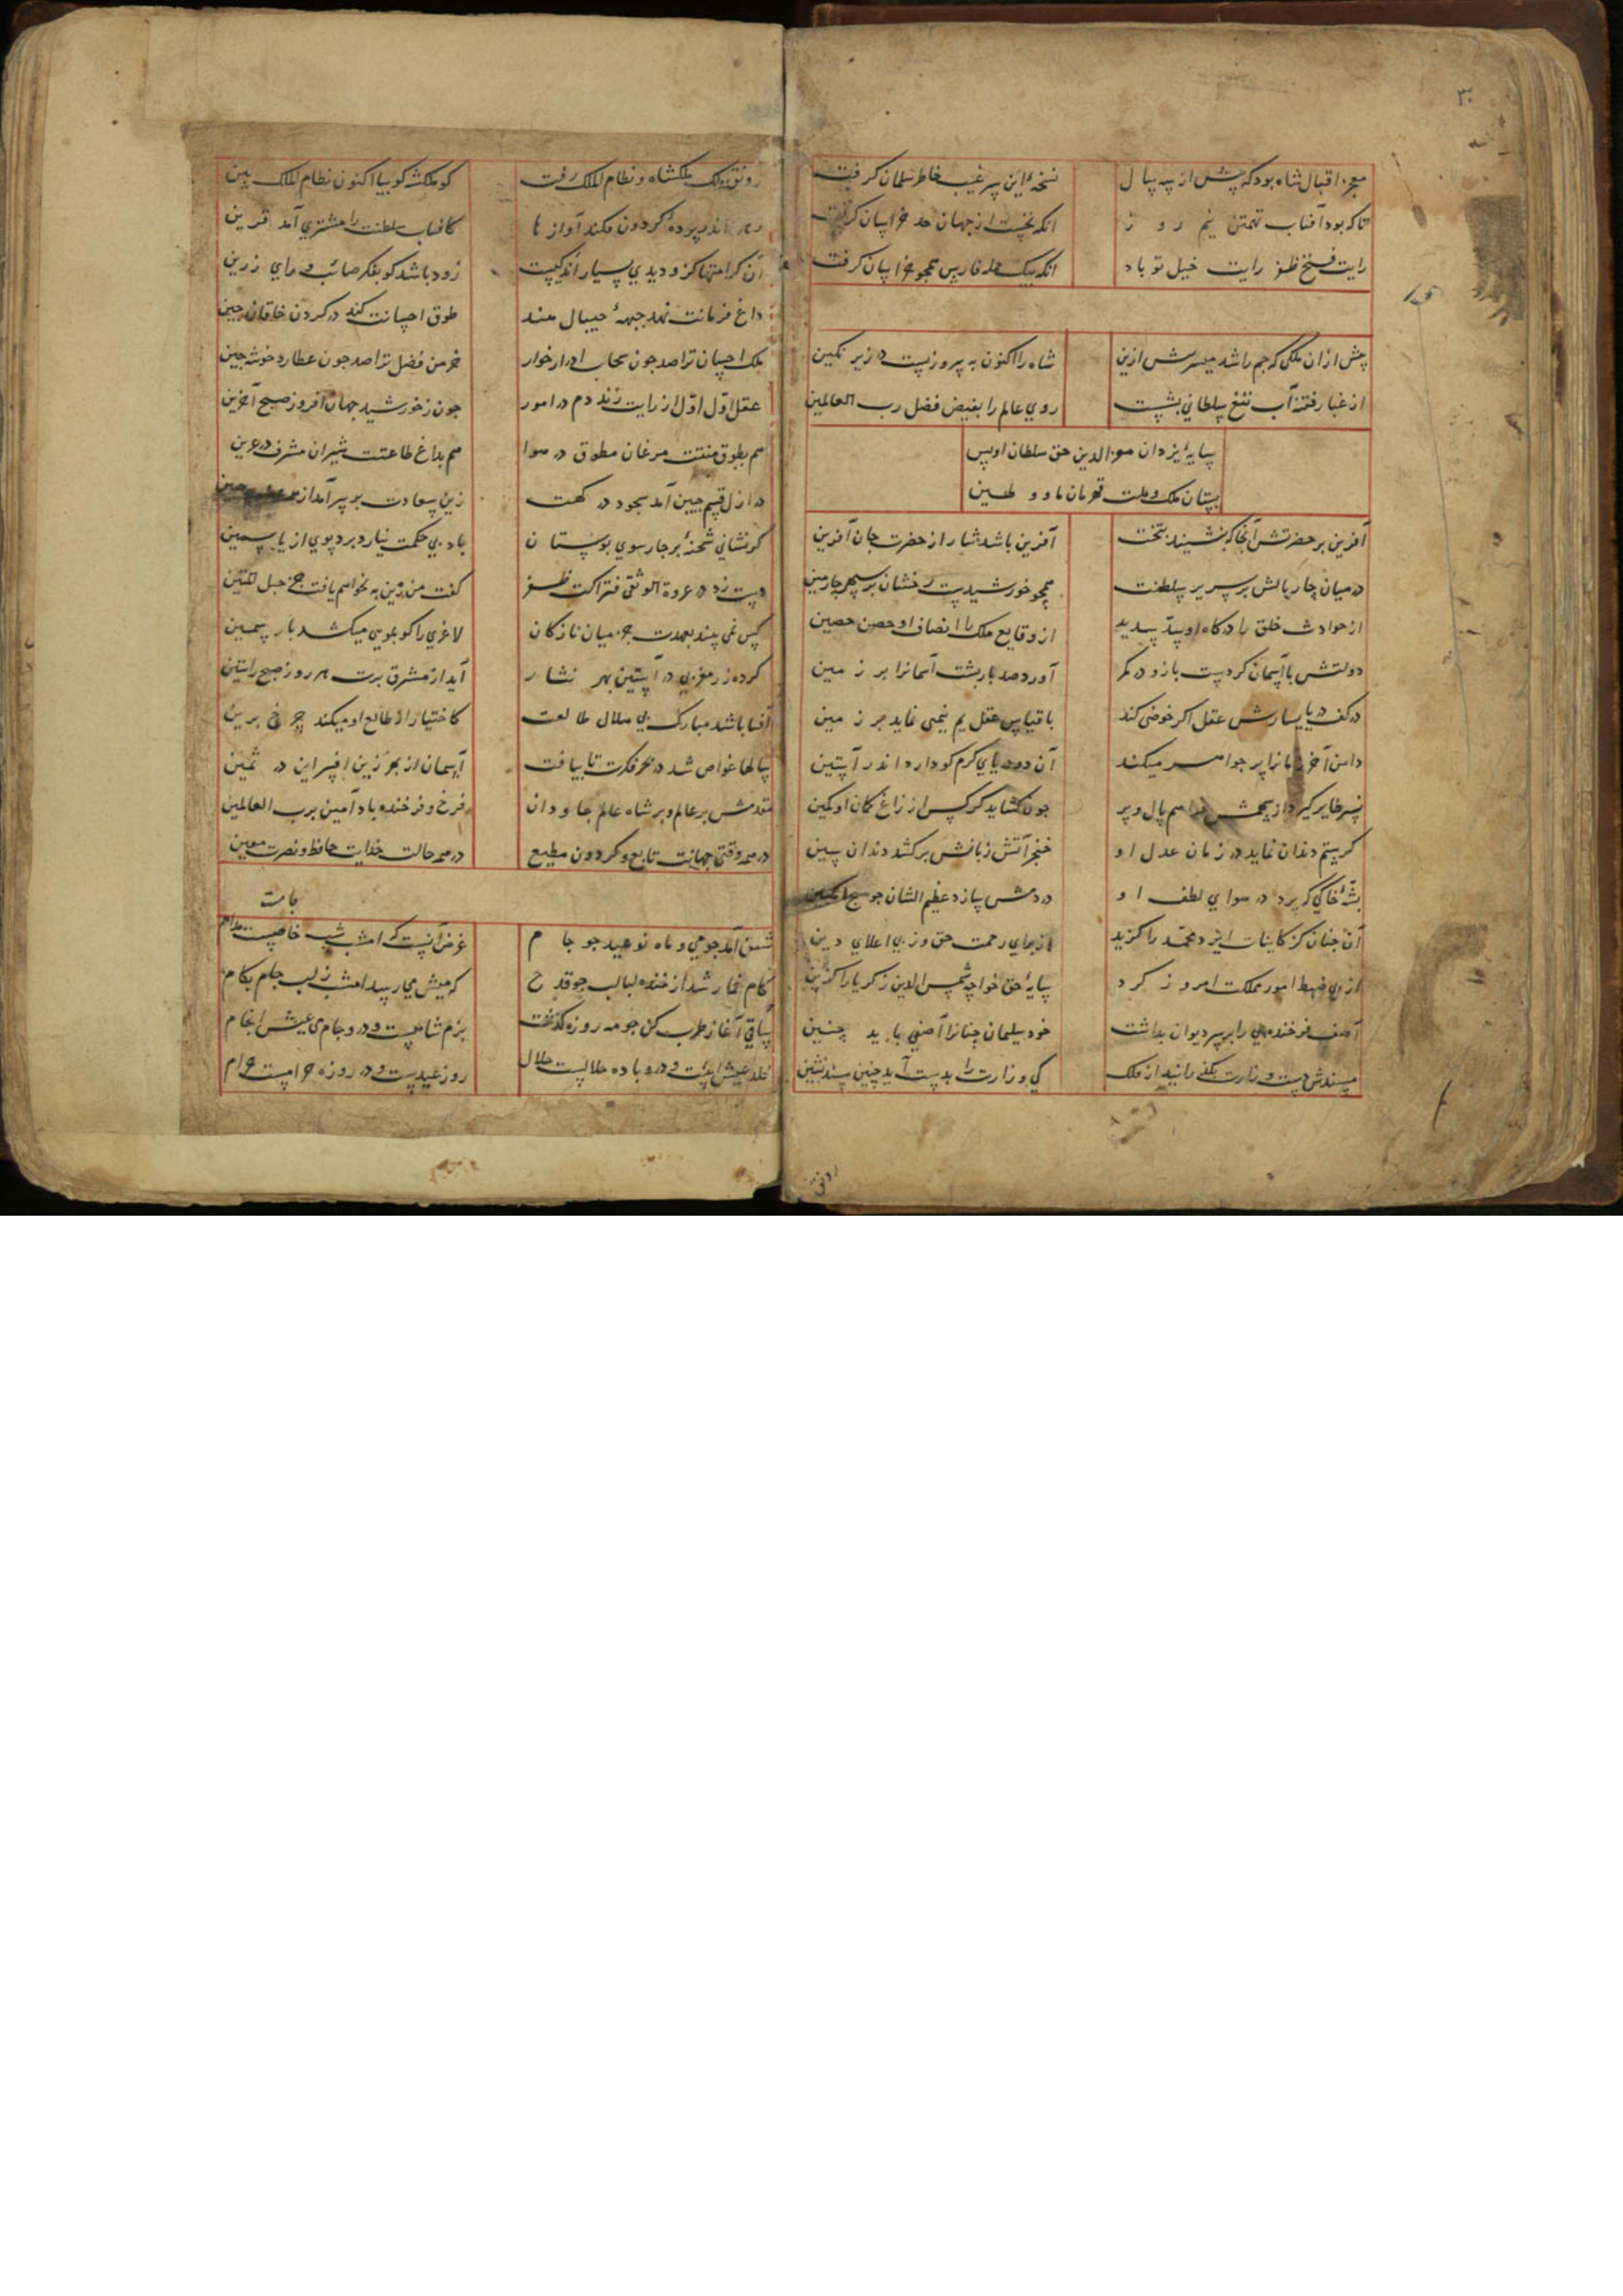 ۳۰
معجز اقبال شاه بود که پیش از سه سال
نسخه این سر غیب خاطر سلمان گرفت
تا که بود آفتاب تهمتن نیم روز
آنکه نخست از جهان حد خراسان گرفت
رایت فتح ظفر رایت خیل تو باد
آنکه بیک حمله فارس همچو خراسان گرفت
پیش ازان ملکی که جم را شد میسر پیش ازین
شاه را اکنون به پیروزیست در زیر نگین
از غبار فتنه آب تیغ سلطانی بشست
روی عالم را بفیض فضل رب العالمین
سایه یزدان معز الدین حق سلطان اویس
ستان ملک و ملت قهرمان ماو و طین
آفرین بر حضرتش آنجا که بنشیند بتخت
آفرین باشد نثار از حضرت جان آفرین
در میان چار بالش بر سریر سلطنت
همچو خورشیدیست رخشان بر سپهر چارمین
از حوادث خلق را درگاه او سد سدید
از وقایع ملک را انصاف او حصن حصین
دولتش با آسمان کردست بازو در کمر
آورد صد بار پشت آسمانرا بر زمین
در کف دریا یسارش عقل اگر خوضی کند
با قیاس عقل یم نیمی نماید بر زمین
دامن آخر زمانرا پر جواهر میکند
آن دو دریای کرم کو دارد اندر آستین
نسر طایر گیرد از سهمش هم بال و پر
چون گشاید کرکس از زاغ کمان او کمین
گر ستم دندان نماید در زمان عدل او
خنجر آتش زبانش برکشد دندان سین
پشه خاکی که پرد در هوای لطف او
در دمش سازد عظیم الشان چو
آن چنان کز کاینات ایزد محمد را گزید
از برای رحمت حق وز پی اعلای دین
از پی ضبط امور مملکت امروز کرد
سایه حق خواجه شمس الدین زکریا را گزین
آصف فرخنده پی را بر سر دیوان بداشت
خود سلیمان چنانرا آصفی باید چنین
مسندش دست وزارت بگذرانید از فلک
کی وزارت را بدست آید چنین مسند نشین
رونق
رونق ملک ملکشاه و نظام الملک رفت
کو ملکشه کو بیا اکنون نظام الملک بین
اندر پرده گردون فکند آوازها
کافتاب سلطنت را مشتری آمد قرین
آن کرامتها کزو دیدی بسیار اندکیست
زود باشد کو بفکر صائب و رای زرین
داغ فرمانت نهد جبهه جیبال هند
طوق احسانت کند در گردن خاقان چین
ملک احسان ترا صد چون سحاب ادرار خوار
خرمن فضل ترا صد چون عطارد خوشه چین
عقل اول اول از رایت زند دم در امور
چون ز خورشید جهان افروز صبح آخرین
هم بطوق منتت مرغان مطوق در هوا
هم بداغ طاعتت شیران مشرف در عرین
در ازل قسم جبین آمد سجود در گهت
زین سعادت بر سر آمد از
گر نشانی شحنه بر چار سوی بوستان
باد بی حکمت نیارد برد بوی از یاسمین
دست زد در عروة الوثقی فتراکت ظفر
گفت من زین به نخواهم یافت حبل المتین
کس نمی بیند بعهدت جز میان نازکان
لاغری را کو بمویی میکشد بار سمین
کرده زر مغربی در آستین بهر نثار
آید از مشرق برت هر روز صبح راستین
آفتابا شد مبارک بی ملال طالعت
کاختیار از طالع او میکند چرخ برین
سالها غواص شد در بحر فکرت تا بیافت
آسمان از بهر زین افسر این در ثمین
مقدمش بر عالم و بر شاه عالم جاودان
فرخ و فرخنده باد آمین برب العالمین
در همه وقتی جهانت تابع و گردون مطیع
در همه حالت خدایت حافظ و نصرت معین
جامت
شفق آمد چو می و ماه نو عید چو جام
غرض آنست که امشب شب خاصیت مدام
کام خمار شد از خنده لبالب چو قدح
که میش می رسد امشب ز لب جام بکام
ساقی آغاز طرب کن چو مه روزه گذشت
بزم شاهیست و در و جام می عیش انجام
خلد عیش است و درو باده حلالست حلال
روز عیدست و در روزه حرامست حرام